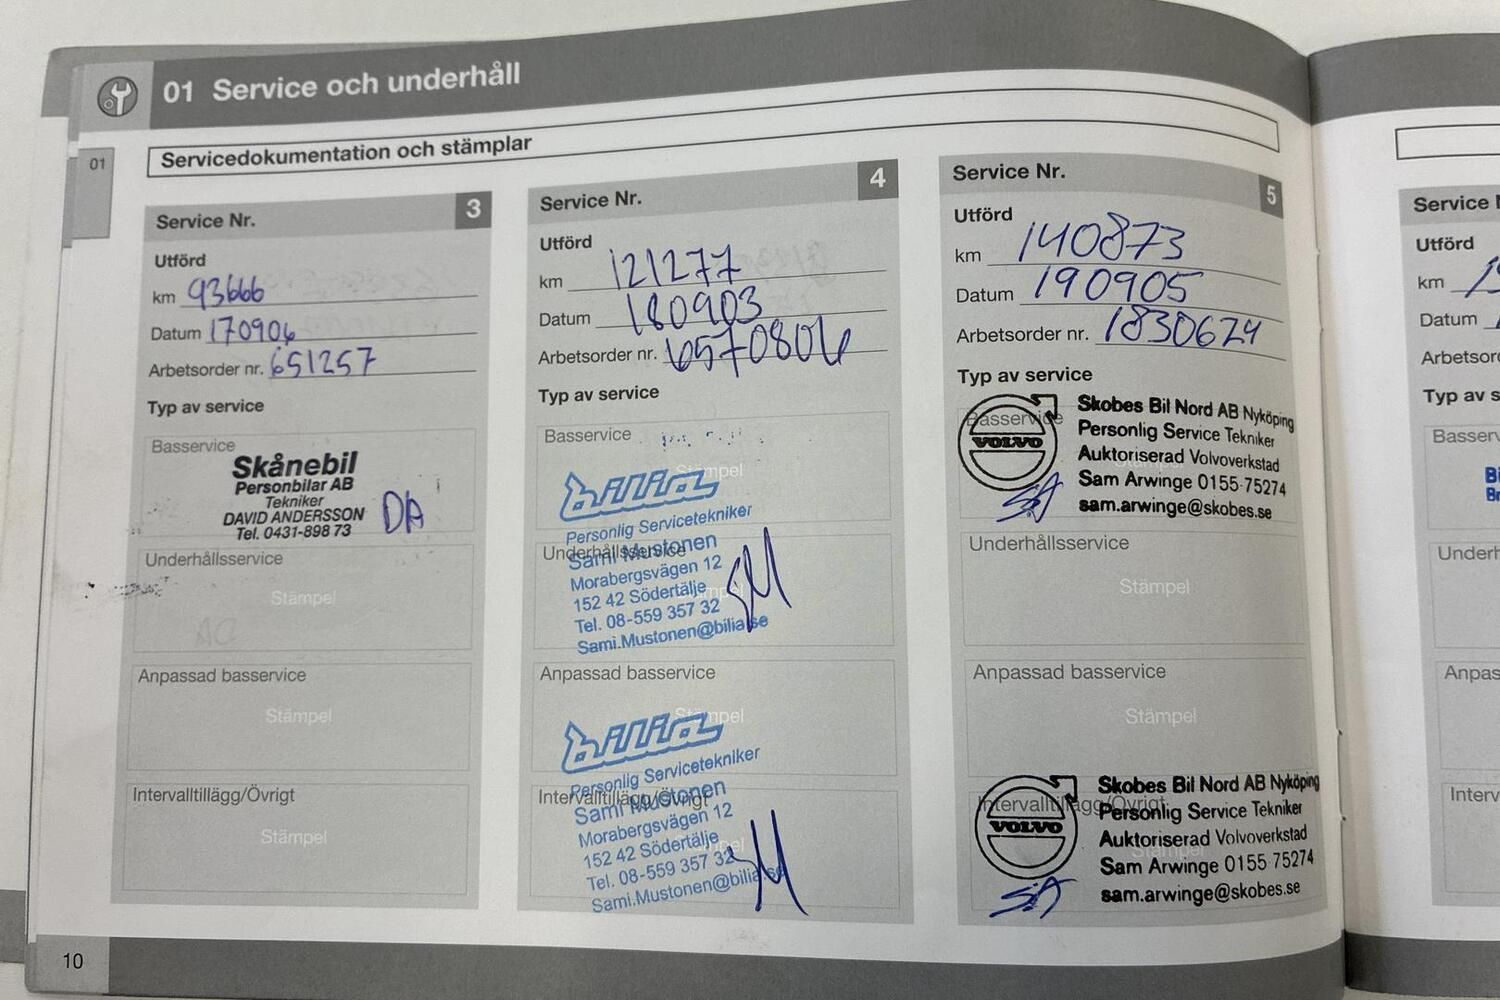 01 Service och underhåll
01
Servicedokumentation och stämplar
Service Nr. 3
Utförd
km 93666
Datum 170906
Arbetsorder nr. 651257
Typ av service
Basservice
Skånebil
Personbilar AB
Tekniker
DAVID ANDERSSON
Tel. 0431-898 73
DA
Underhållsservice
Stämpel
Anpassad basservice
Stämpel
Intervalltillägg/Övrigt
Stämpel
Service Nr. 4
Utförd
km 121277
Datum 180903
Arbetsorder nr.
Typ av service
Basservice
Stämpel
bilia
Personlig Servicetekniker
Underhållsservice
Sami Mustonen
Morabergsvägen 12
152 42 Södertälje
Tel. 08-559 357 32
Sami.Mustonen@bilia.se
SM
Anpassad basservice
Stämpel
bilia
Personlig Servicetekniker
Intervalltillägg/Övrigt
Sami Mustonen
Morabergsvägen 12
152 42 Södertälje
Tel. 08-559 357 32
Sami.Mustonen@bilia.se
SM
Service Nr. 5
Utförd
km 140873
Datum 190905
Arbetsorder nr. 1830624
Typ av service
Basservice
VOLVO
Skobes Bil Nord AB Nyköping
Personlig Service Tekniker
Auktoriserad Volvoverkstad
Sam Arwinge 0155-75274
sam.arwinge@skobes.se
SA
Underhållsservice
Stämpel
Anpassad basservice
Stämpel
Intervalltillägg/Övrigt
VOLVO
Skobes Bil Nord AB Nyköping
Personlig Service Tekniker
Auktoriserad Volvoverkstad
Sam Arwinge 0155 75274
sam.arwinge@skobes.se
SA
Service
Utförd
km
Datum
Typ av
10